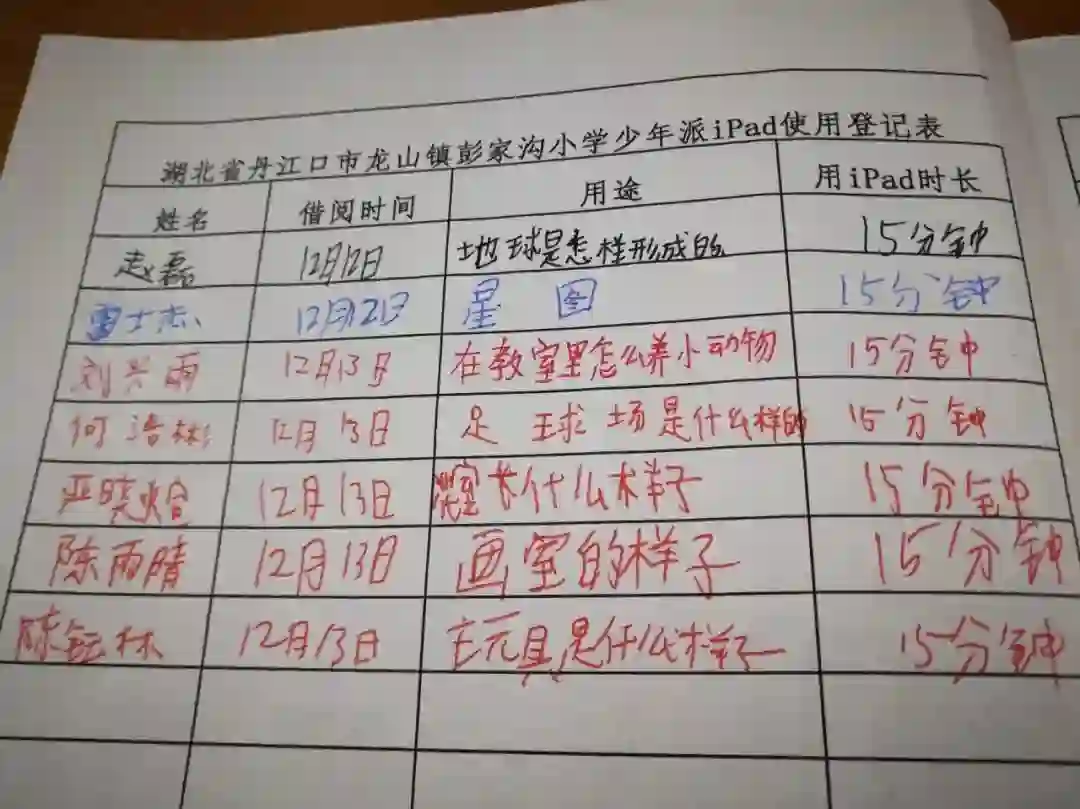 湖北省丹江口市龙山镇彭家沟小学少年派iPad使用登记表
姓名 借阅时间 用途 用iPad时长
赵磊 12月12日 地球是怎样形成的 15分钟
雷士杰 12月12日 星图 15分钟
刘兴雨 12月13日 在教室里怎么养小动物 15分钟
何浩彬 12月13日 足球场是什么样的 15分钟
严晓 12月13日 室长什么样子 15分钟
陈雨晴 12月13日 画室的样子 15分钟
陈钰林 12月13日 元具是什么样子 15分钟